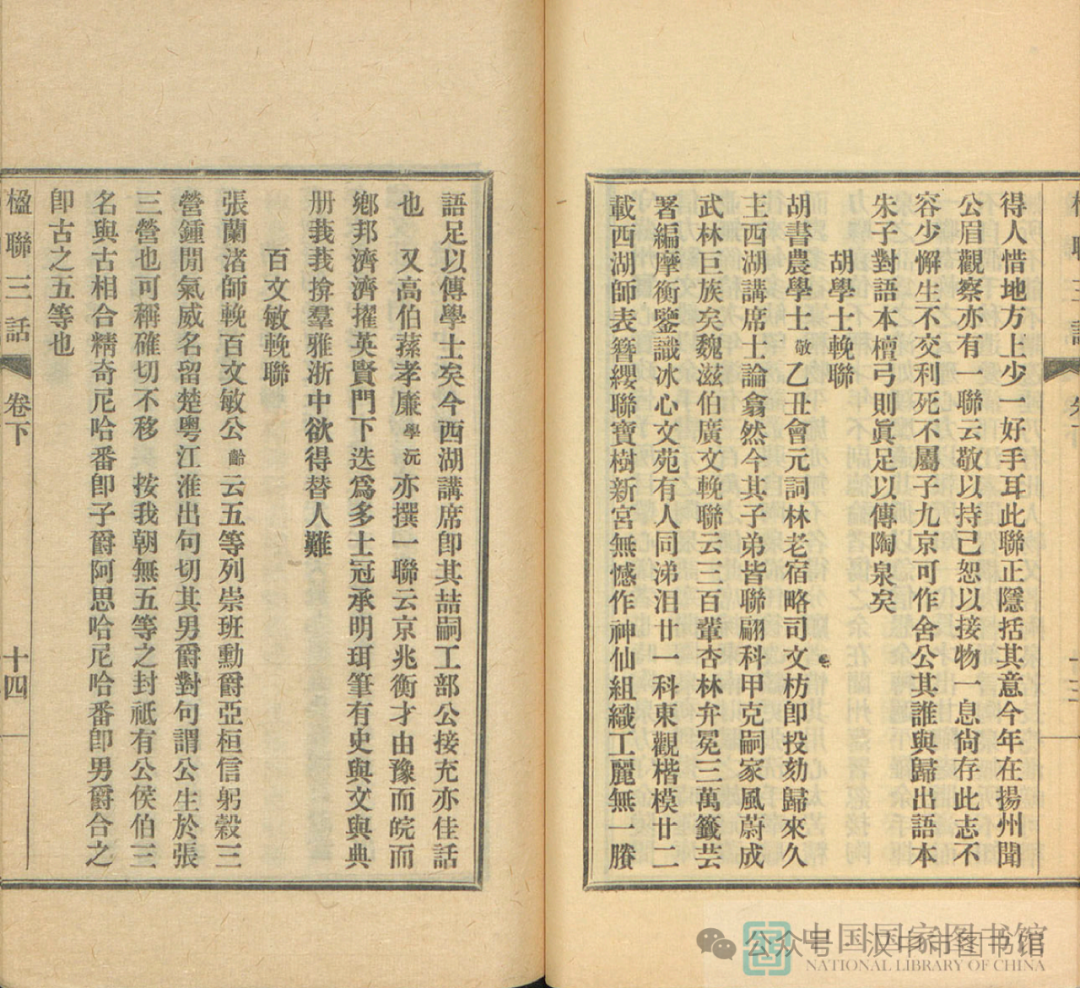 得人惜地方上少一好手耳此聯正隱括其意今年在揚州聞
公眉觀察亦有一聯云敬以持己恕以接物一息尙存此志不
容少懈生不交利死不屬子九京可作舍公其誰與歸出語本
朱子對語本檀弓則眞足以傳陶泉矣
胡學士輓聯
胡書農學士敬乙丑會元詞林老宿略司文枋卽投劾歸來久
主西湖講席士論翕然今其子弟皆聯翩科甲克嗣家風蔚成
武林巨族矣魏滋伯廣文輓聯云三百輩杏林弁冕三萬籤芸
署編摩衡鑒識冰心文苑有人同涕泪廿一科東觀楷模廿二
載西湖師表簪纓聯寶樹新宮無憾作神仙組織工麗無一賸
語足以傳學士矣今西湖講席卽其喆嗣工部公接充亦佳話
也 又高伯蓀孝廉學沅亦撰一聯云京兆衡才由豫而皖而
鄕邦濟濟擢英賢門下迭爲多士冠承明珥筆有史與文與典
册莪莪揜羣雅浙中欲得替人難
百文敏輓聯
張蘭渚師輓百文敏公齡云五等列崇班勳爵亞桓信躬穀三
營鍾閒氣威名留楚粵江淮出句切其男爵對句謂公生於張
三營也可稱確切不移 按我朝無五等之封祇有公侯伯三
名與古相合精奇尼哈番卽子爵阿思哈尼哈番卽男爵合之
卽古之五等也
楹聯三話 卷下 十四
中国国家图书馆
NATIONAL LIBRARY OF CHINA
公众号 汉中市图书馆